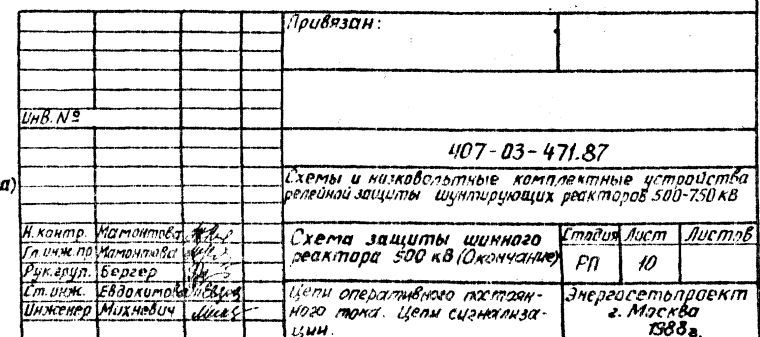 Привязан:
Инв. №
407-03-471.87
а)
Схемы и низковольтные комплектные устройства
релейной защиты шунтирующих реакторов 500-750 кВ
Н. контр. Мамонтова
Гл. инж. пр Мамонтова
Рук. груп. Бергер
Ст. инж. Евдокимова
Инженер Михневич
Схема защиты шинного
реактора 500 кВ (Окончание)
Стадия Лист Листов
РП 10
Цепи оперативного постоян-
ного тока. Цепи сигнализа-
ции.
Энергосетьпроект
г. Москва
1988г.